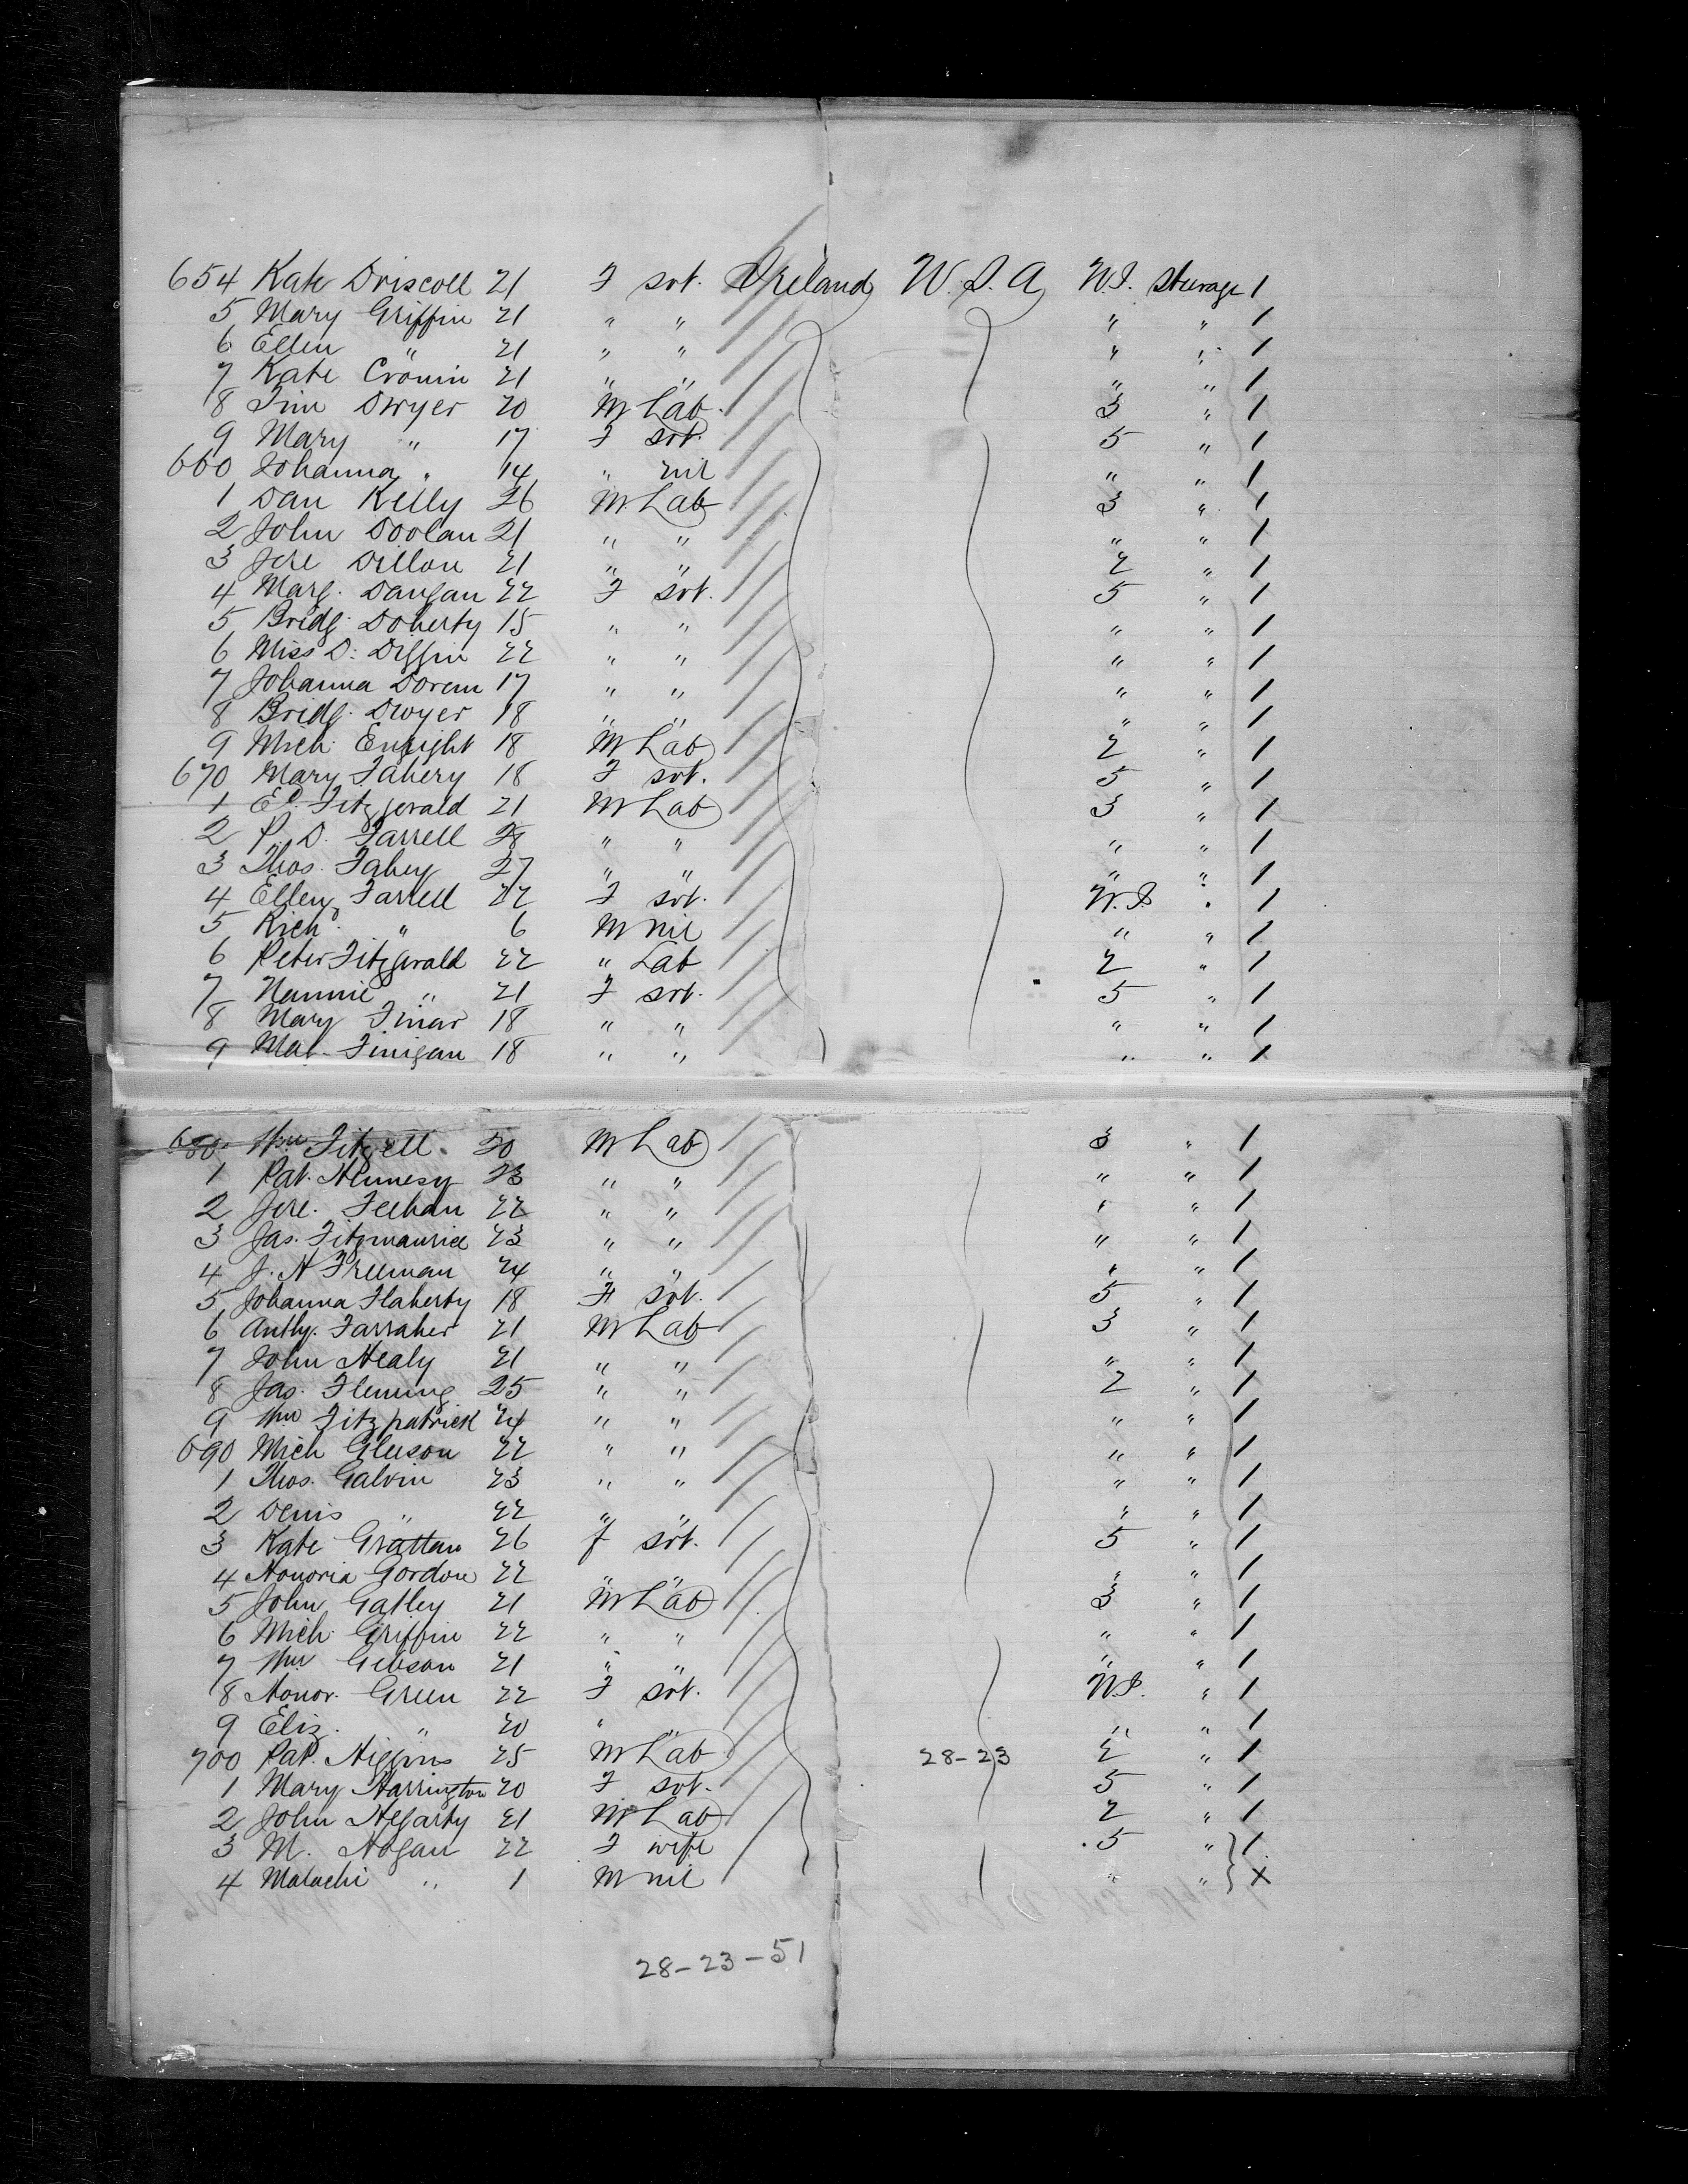 654 Kate Driscoll 21 F svt. Ireland U.S.A W.S. Steerage 1
5 Mary Griffin 21 " " " " 1
6 Ellen " 21 " " " " 1
7 Kate Cronin 21 " " " " 1
8 Tim Dwyer 20 M Lab 3 " 1
9 Mary " 17 F svt. 5 " 1
660 Johanna " 14 " nil " " 1
1 Dan Kelly 26 M Lab 3 " 1
2 John Doolan 21 " " " " 1
3 Jere Dillon 21 " " 2 " 1
4 Marg. Dangan 22 F svt. 5 " 1
5 Bridg. Doherty 15 " " " " 1
6 Miss D. Diffin 22 " " " " 1
7 Johanna Doran 17 " " " " 1
8 Bridg. Dwyer 18 " " " " 1
9 Mich. Enright 18 M Lab 2 " 1
670 Mary Fahery 18 F svt. 5 " 1
1 Ed. Fitzgerald 21 M Lab 3 " 1
2 P. D. Farrell 28 " " " " 1
3 Thos. Fahey 27 " " " " 1
4 Ellen Farrell 22 F svt. W.S. " 1
5 Richd. " 6 M nil " " 1
6 Peter Fitzgerald 22 " Lab 2 " 1
7 Nannie " 21 F svt. 5 " 1
8 Mary Finar 18 " " " " 1
9 Mat. Finigan 18 " " " " 1
680 Wm Fitzell. 20 M Lab 3 " 1
1 Pat. Hennesy 23 " " " " 1
2 Jere. Feehan 22 " " " " 1
3 Jas. Fitzmaurice 23 " " " " 1
4 J. H Freeman 24 " " " " 1
5 Johanna Flaherty 18 F svt. 5 " 1
6 Anthy. Farraher 21 M Lab 3 " 1
7 John Healy 21 " " " " 1
8 Jas. Fleming 25 " " 2 " 1
9 Wm Fitzpatrick 24 " " " " 1
690 Mich Gleeson 22 " " " " 1
1 Thos. Galvin 23 " " " " 1
2 Denis " 22 " " " " 1
3 Kate Grattan 26 f svt. 5 " 1
4 Honoria Gordon 22 " " " " 1
5 John Gatley 21 M Lab 3 " 1
6 Mich. Griffin 22 " " " " 1
7 Wm Gibson 21 " " " " 1
8 Honor. Green 22 F svt. W.S. " 1
9 Eliz. " 20 " " " " 1
700 Pat. Higgins 25 M Lab 28-23 2 " 1
1 Mary Harrington 20 F svt. 5 " 1
2 John Hegarty 21 M Lab 2 " 1
3 M. Hogan 22 F wife 5 " 1
4 Malachi " 1 M nil " " X
28-23-51